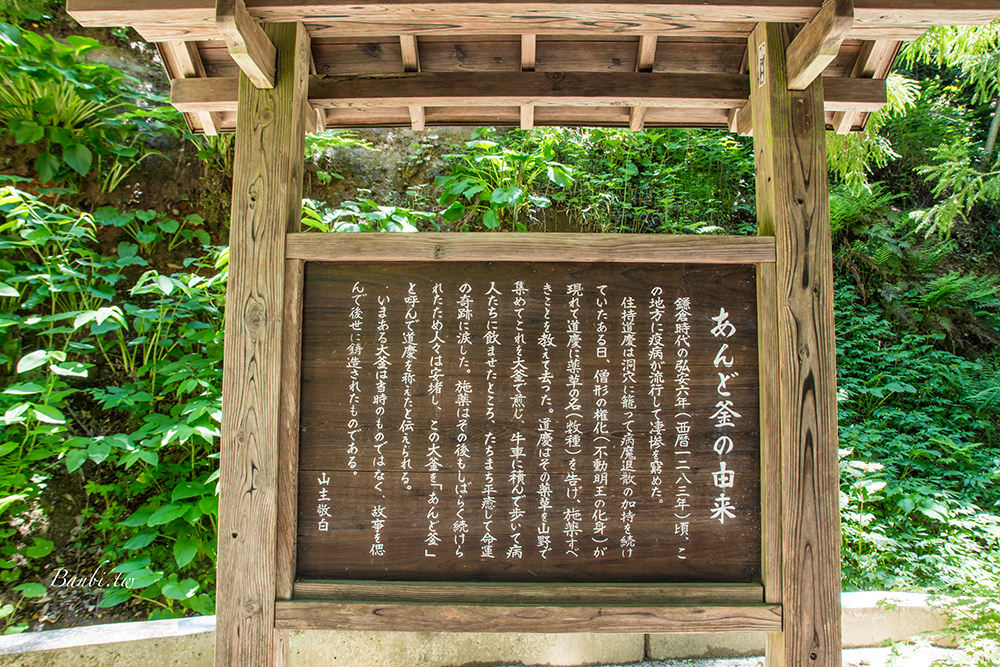 あんど釜の由来
鎌倉時代の弘安六年（西暦一二八三年）頃、こ
の地方に疫病が流行して凄惨を窮めた。
住持道慶は洞穴に籠って病魔退散の加持を続け
ていたある日、僧形の権化（不動明王の化身）が
現れて道慶に薬草の名（数種）を告げ、施薬すべ
きことを教えて去った。道慶はその薬草を山野で
集めてこれを大釜で煎じ、牛車に積んで歩いて病
人たちに飲ませたところ、たちまち平癒して命運
の奇跡に涙した。施薬はその後もしばらく続けら
れたため人々は安堵し、この大釜を「あんど釜」
と呼んで道慶を称えたと伝えられる。
いまある大釜は当時のものではなく、故事を偲
んで後世に鋳造されたものである。
山主敬白
Banbi.tw